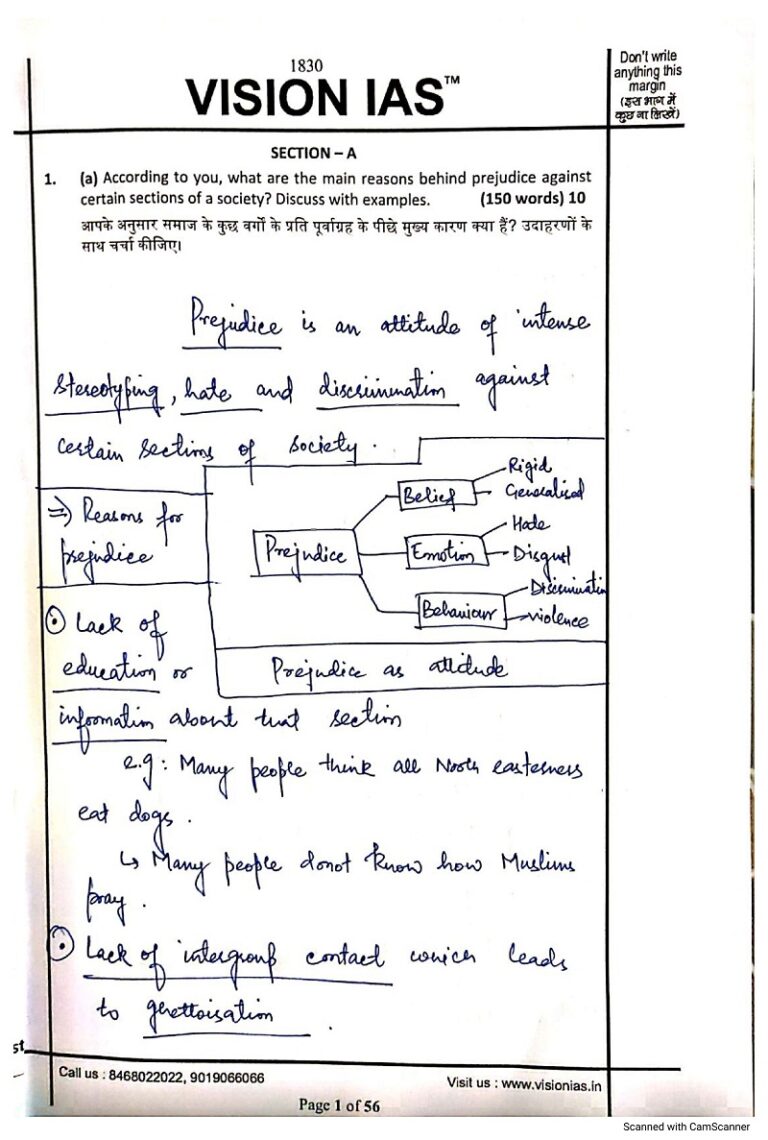 1830
VISION IAS™
Don't write
anything this
margin
(इस भाग में
कुछ ना लिखें)
SECTION – A
1. (a) According to you, what are the main reasons behind prejudice against
certain sections of a society? Discuss with examples. (150 words) 10
आपके अनुसार समाज के कुछ वर्गों के प्रति पूर्वाग्रह के पीछे मुख्य कारण क्या हैं? उदाहरणों के
साथ चर्चा कीजिए।
Prejudice is an attitude of intense
stereotyping, hate and discrimination against
certain sections of society.
⇒) Reasons for
prejudice
Prejudice
Belief
Rigid
Generalised
Emotion
Hate
Disgust
Behaviour
Discrimination
violence
Prejudice as attitude
Lack of
education or
information about that section
e.g: Many people think all North easterners
eat dogs.
↳ Many people donot know how Muslims
pray.
Lack of intergroup contact which leads
to ghettoisation.
st
Call us : 8468022022, 9019066066
Visit us : www.visionias.in
Page 1 of 56
Scanned with CamScanner